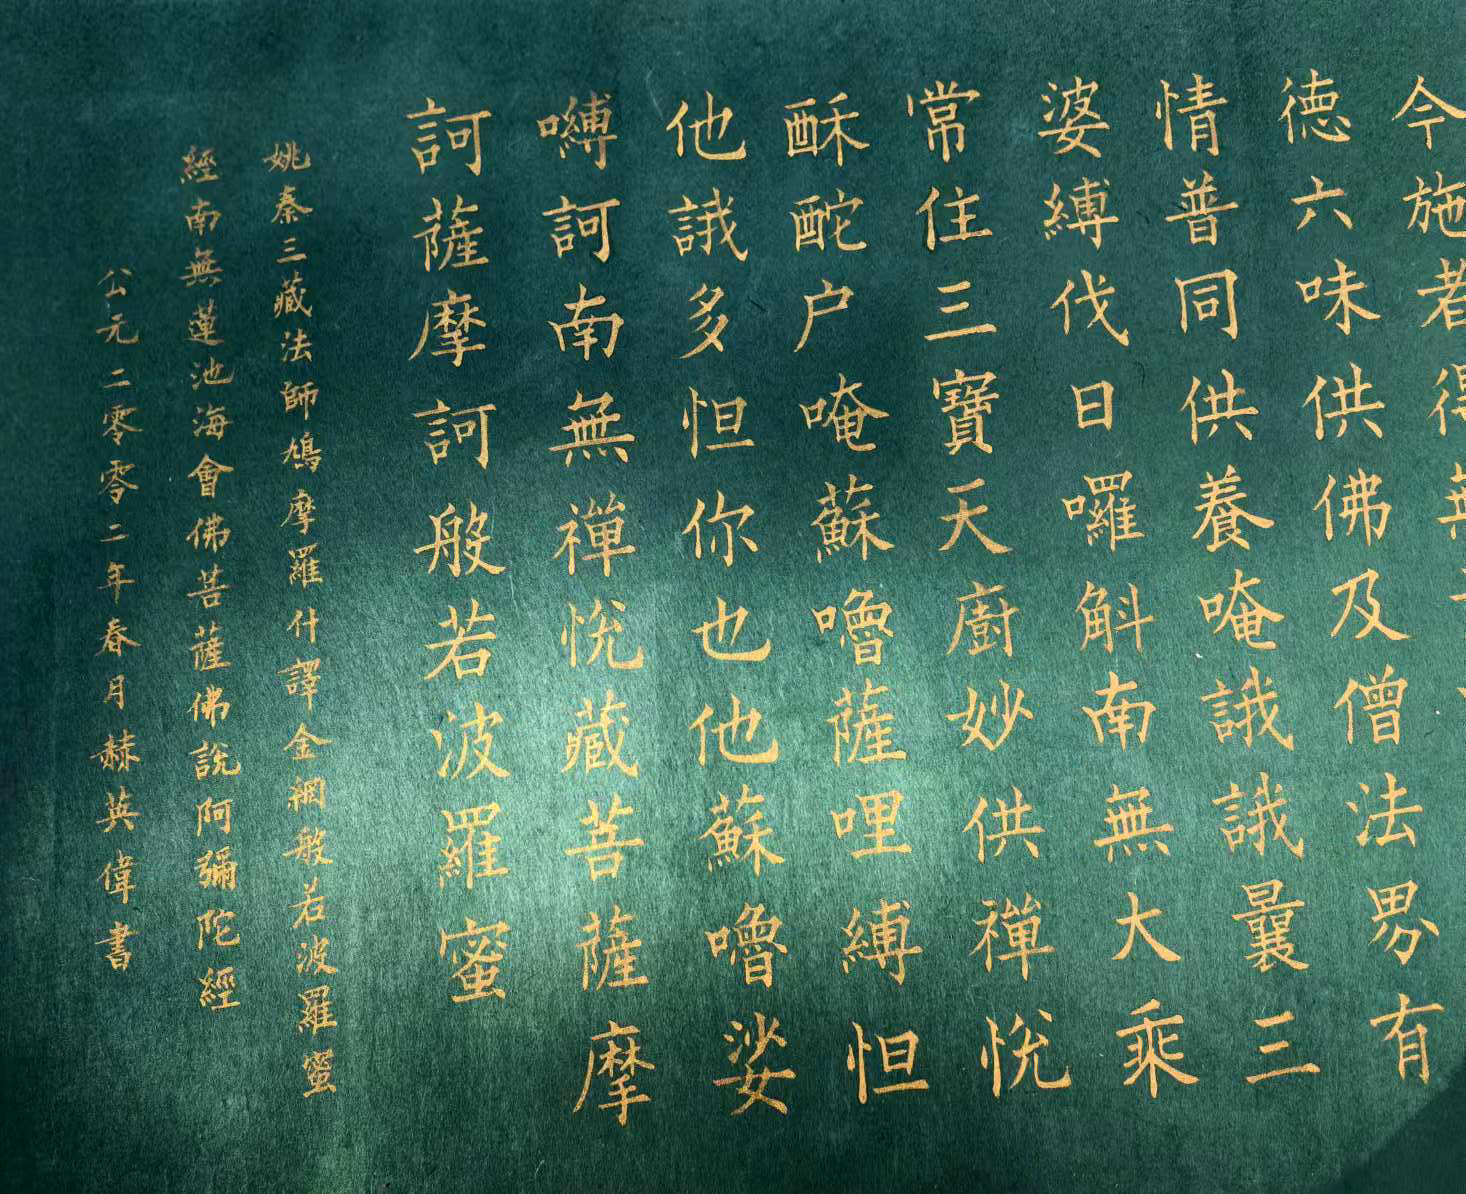 今施者得無
德六味供佛及僧法界有
情普同供養唵誐誐曩三
婆縛伐日囉斛南無大乘
常住三寶天廚妙供禪悅
酥酡户唵蘇嚕薩哩縛怛
他誐多怛你也他蘇嚕娑
嚩訶南無禪悅藏菩薩摩
訶薩摩訶般若波羅蜜
姚秦三藏法師鳩摩羅什譯金網般若波羅蜜
經南無蓮池海會佛菩薩佛說阿彌陀經
公元二零零二年春月赫英偉書